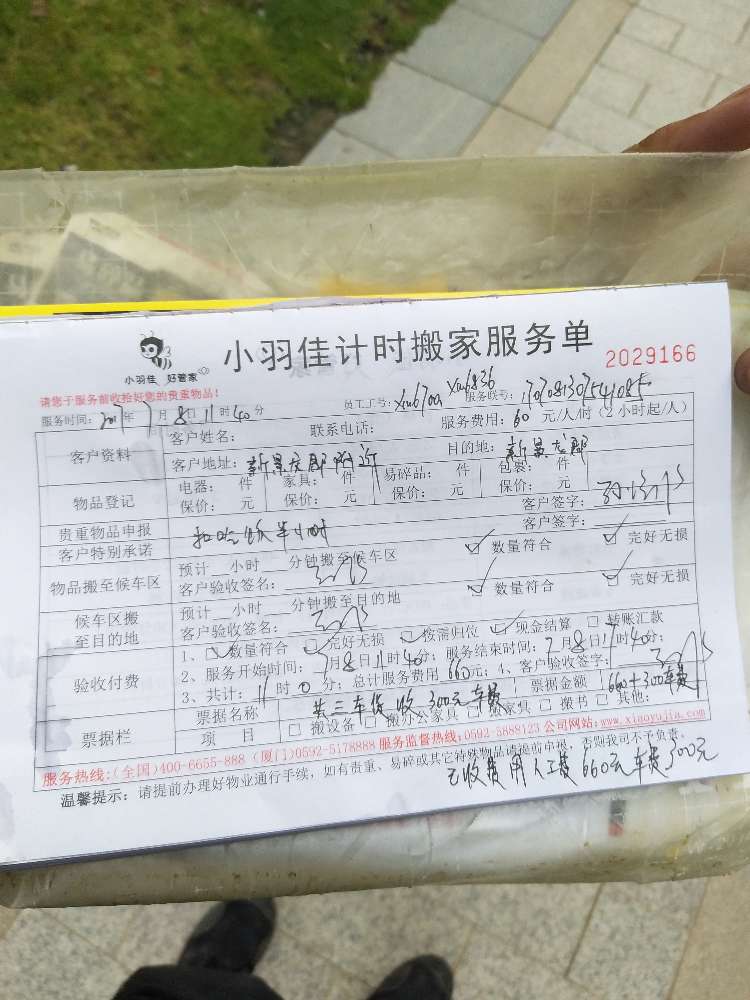 小羽佳 好管家
小羽佳计时搬家服务单
2029166
请您于服务前收捡好您的贵重物品！
服务时间：2017年7月8日11时40分 员工工号： xm6836 服务联号：
客户资料
客户姓名： 联系电话： 服务费用：60元/人/时（2小时起/人）
客户地址：新景龙郡附近 目的地：新景龙郡
物品登记
电器： 件 家具： 件 易碎品： 件 包装： 件
保价： 元 保价： 元 保价： 元 保价： 元
贵重物品申报 客户签字：
客户特别承诺 扣吃饭半小时 客户签字：
物品搬至候车区
预计 小时 分钟搬至候车区 数量符合 完好无损
客户验收签名：
候车区搬至目的地
预计 小时 分钟搬至目的地 数量符合 完好无损
客户验收签名：
验收付费
1、数量符合 完好无损 按需归位 现金结算 转账汇款
2、服务开始时间：7月8日11时40分；服务结束时间：7月8日 时40分；
3、共计：11时0分；总计服务费用660元；4、客户验收签字：
票据栏
票据名称 共三车货收300元车费 票据金额 660+300车费
项 目 搬设备 搬办公家具 搬家具 搬书 其他：
服务热线：(全国)400-6655-888 (厦门)0592-5178888 服务监督热线：0592-5889123 公司网站：www.xiaoyujia.com
温馨提示：请提前办理好物业通行手续，如有贵重、易碎或其它特殊物品请提前申报，否则我司不予负责。
已收费用人工费660元 车费300元